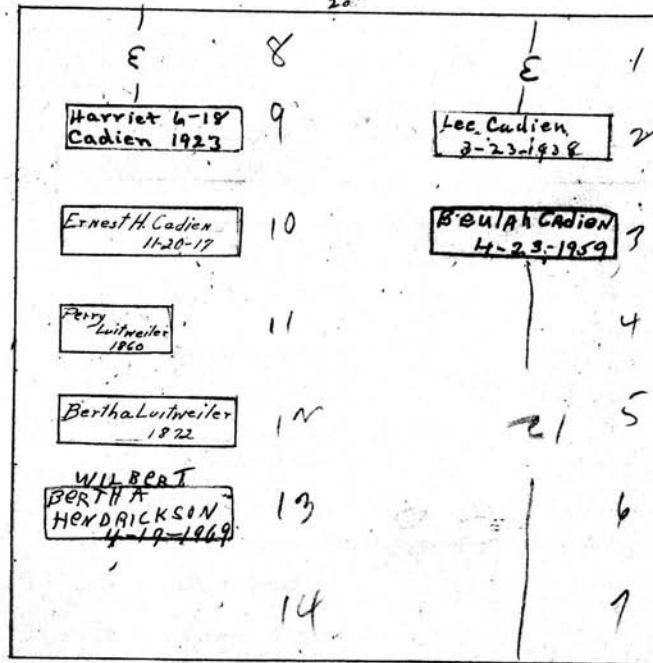 20
E 8
Harriet 4-18
Cadien 1923
9
Ernest H. Cadien
11-20-17
10
Perry
Luitweiler
1860
11
Bertha Luitweiler
1872
12
WILBERT
BERTHA
HENDRICKSON
4-19-1969
13
14
E 1
Lee Cadien
3-23-1938
2
BEULAH CADIEN
4-23-1959
3
4
21 5
6
7